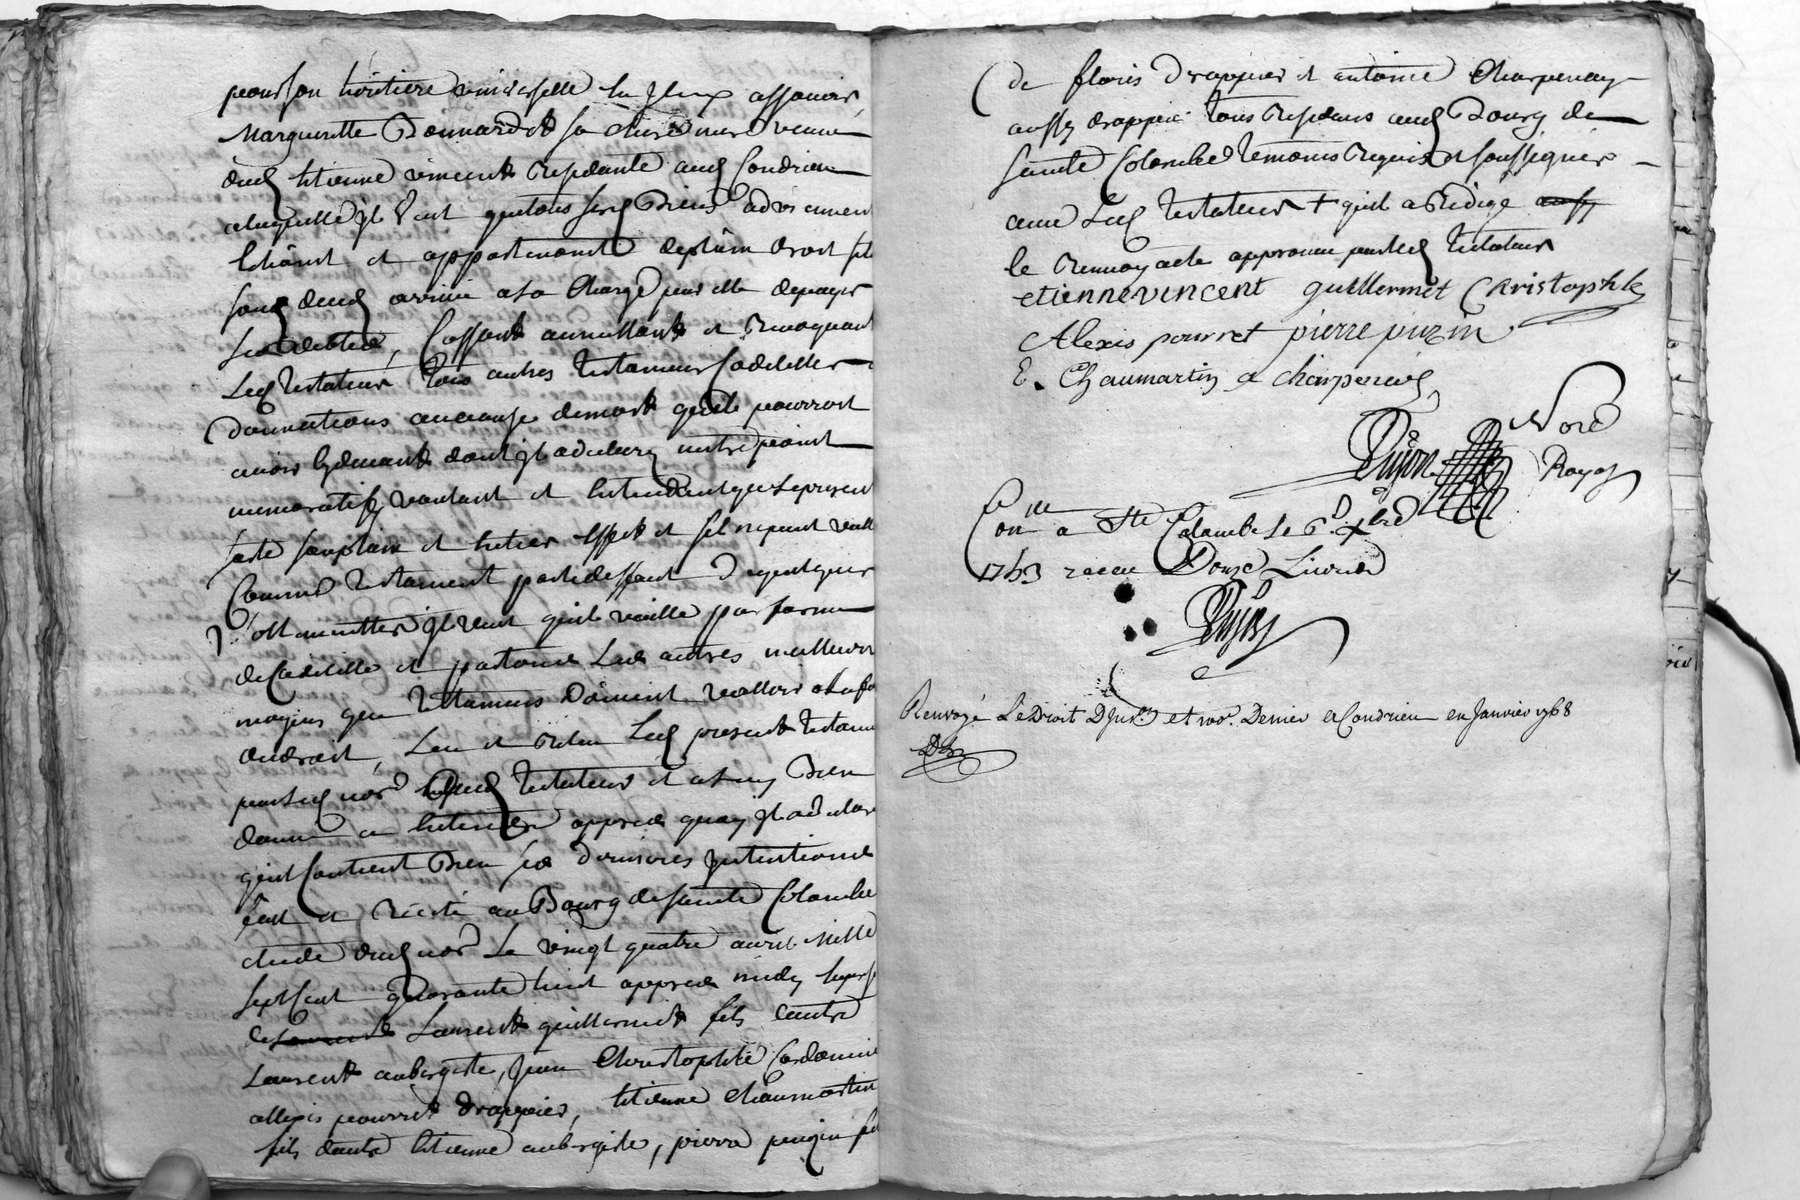 pour son heritiere universelle en iceux assavoir
Margueritte Bonnardet sa chere mere veuve
dud Etienne vincent residante aud Condrieu
a laquelle Il veut que tous sesd Biens advienent
Echoint et appartiennent de plain droit
dud arrivé a la Charge par elle de payer
ses debtes, Cassant annullant et revoquant
Led testateur tous autres testamens Codicilles
donnations a cause de mort qu'il pourroit
avoir cydevant dont Il a declaré n'etre point
memoratif, voulant et Entendant que Le present
sorte son plain et entier Effet et s'il ne peut valloir
Comme testament par deffaut de quelques
formallittés Il veut qu'il vaille par forme
de Codicille et par tous Les autres meilleurs
moyens que testamens doivent valloir
de droit, Leu et releu Led present testament
par Led nore aud testateur et a luy Bien
donné a Entendre apprés quoy Il a declaré
qu'il Contient Bien ses dernieres Intentions
fait et recité au Bourg de sainte Colombe
etude dud nore Le vingt quatre avril Mille
sept Cent quarante huit apprés midy
Laurent guillermet fils d'autre
Laurent aubergiste, Jean Christophle Cordonnier
allexis pourret drappier, Etienne Chaumartin
fils d'autre Etienne aubergiste, pierre puzin fils
de floris drappier et antoine Charpenay
aussy drappier tous residans aud Bourg de
sainte Colombe temoins requis et soussignés
avec Led testateur + qu'il a redigé aussy
le renvoy acte approuvé par Led testateur
etienne vincent guillermet Christophle
Alexis pourret pierre puzin
E. Chaumartin a charpenay
Dujon Nore
Royal
Conlle a Ste Colombe Le 6e xbre
1753 receu Douze Livres
Dujon
Renvoyé Le Droit D'Ins.on et 100e. Denier a Condrieu en Janvier 1768